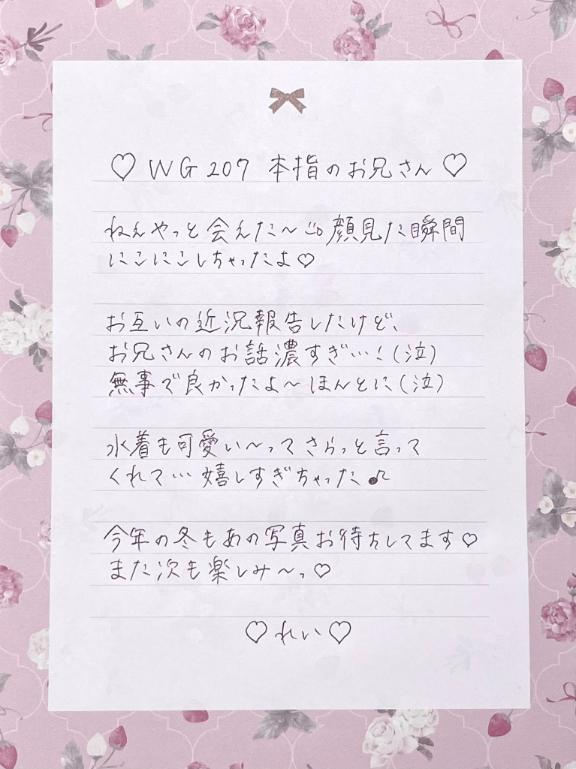 ♡ WG 207 本指のお兄さん ♡
ねんやっと会えた〜 顔見た瞬間
にこにこしちゃったよ♡
お互いの近況報告したけど、
お兄さんのお話濃すぎ…！(泣)
無事で良かったよ〜ほんとに(泣)
水着も可愛い〜ってさらっと言って
くれて…嬉しすぎちゃった♪
今年の冬もあの写真お待ちしてます♡
また次も楽しみ〜っ♡
♡ れい ♡